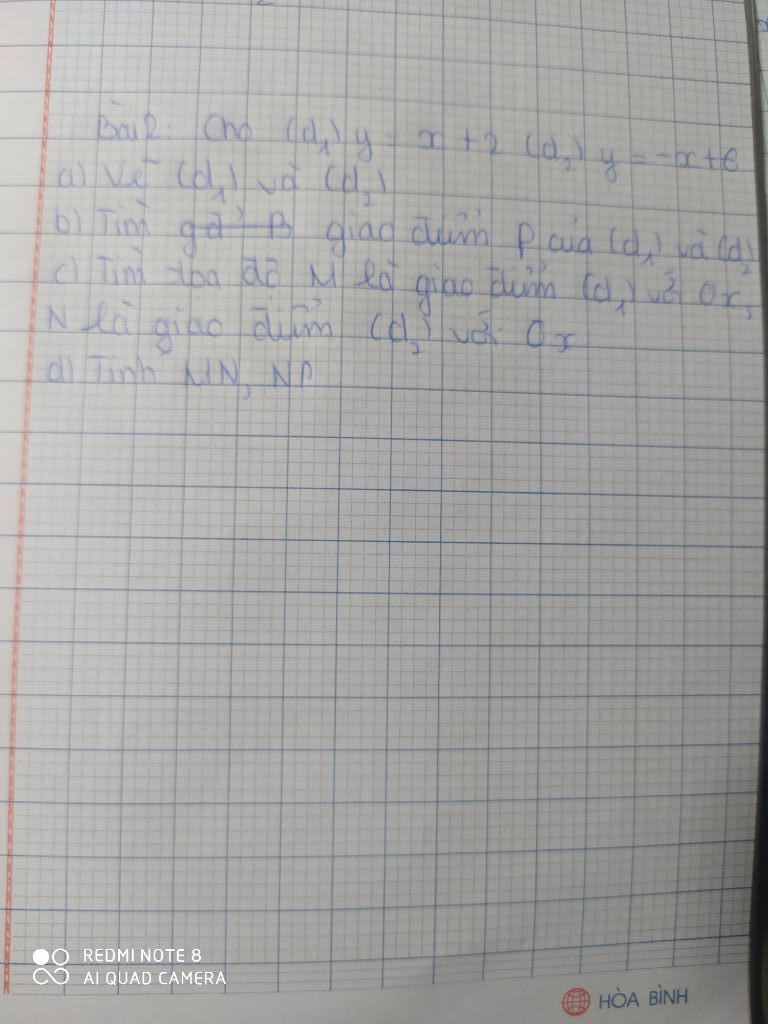 Bài 2: Cho (d₁) y = x + 2 (d₂) y = -x + 6
a) Vẽ (d₁) và (d₂)
b) Tìm giao điểm P của (d₁) và (d₂)
c) Tìm tọa độ M là giao điểm (d₁) với Ox,
N là giao điểm (d₂) với Ox
d) Tính MN, NP
REDMI NOTE 8
AI QUAD CAMERA
HÒA BÌNH